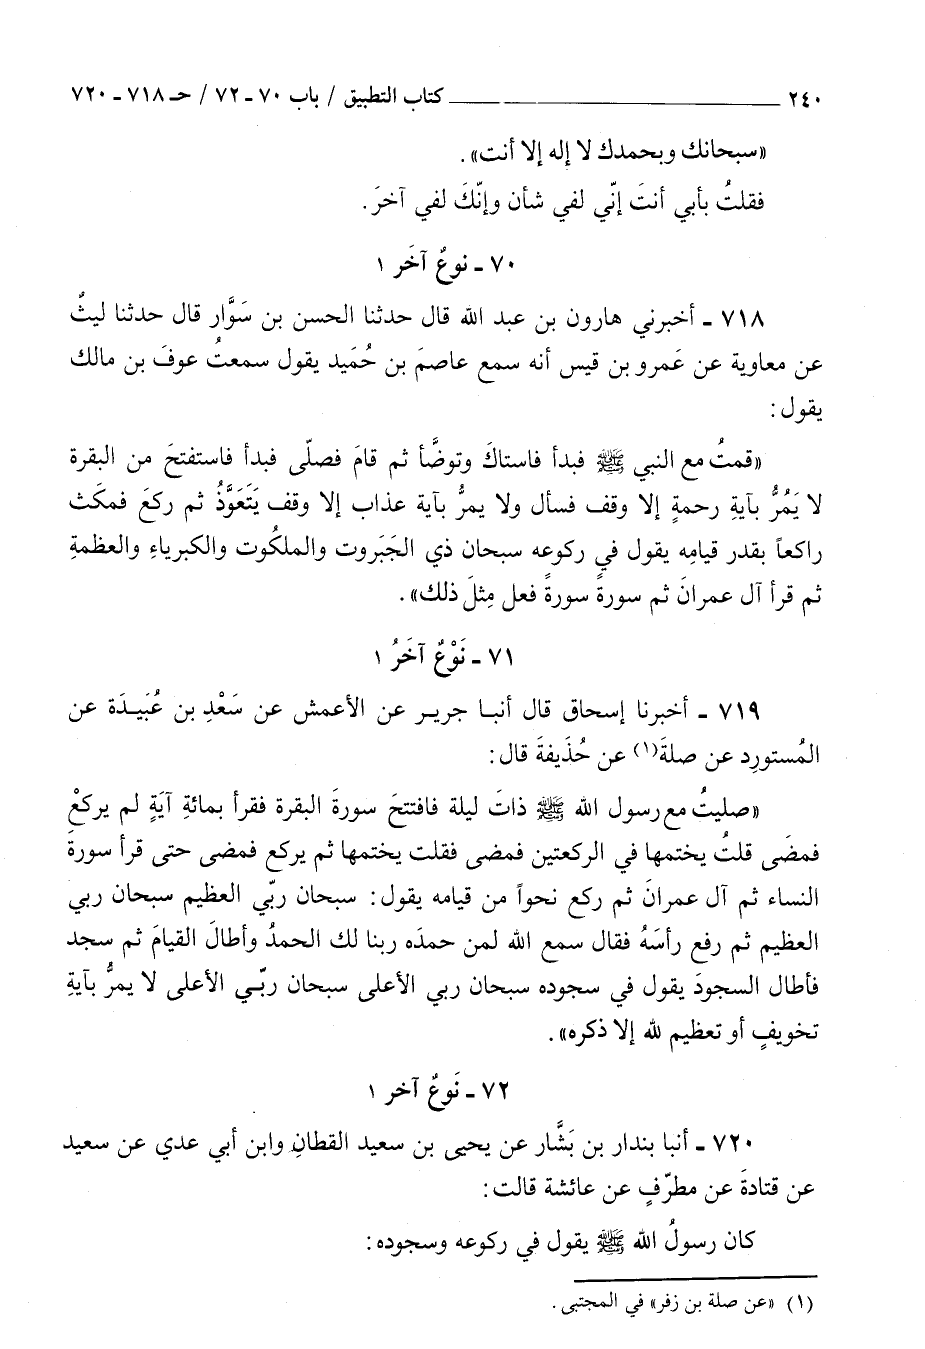 ٢٤٠ ــــــــــــــــ كتاب التطبيق / باب ٧٠ - ٧٢ / حـ ٧١٨ - ٧٢٠
«سبحانك وبحمدك لا إله إلا أنت».
فقلتُ بأبي أنتَ إنّي لفي شأن وإنّكَ لفي آخرَ.
٧٠ - نوعٌ آخَر ١
٧١٨ - أخبرني هارون بن عبد الله قال حدثنا الحسن بن سَوَّار قال حدثنا ليثٌ
عن معاوية عن عَمرو بن قيس أنه سمع عاصمَ بن حُمَيد يقول سمعتُ عوفَ بن مالك
يقول:
«قمتُ مع النبي ﷺ فبدأ فاستاكَ وتوضَّأ ثم قامَ فصلّى فبدأ فاستفتحَ من البقرة
لا يَمُرُّ بآيةِ رحمةٍ إلا وقف فسأل ولا يمرُّ بآية عذاب إلا وقف يَتَعَوَّذُ ثم ركعَ فمكَث
راكعاً بقدر قيامِه يقول في ركوعه سبحان ذي الجَبَروت والملكُوت والكبرياءِ والعظمةِ
ثم قرأ آل عمرانَ ثم سورةً سورةً فعل مِثلَ ذلك».
٧١ - نَوْعٌ آخَرُ ١
٧١٩ - أخبرنا إسحاق قال أنبا جرير عن الأعمش عن سَعْدِ بن عُبَيدَة عن
المُستورِد عن صلةَ(١) عن حُذَيفةَ قال:
«صليتُ مع رسول الله ﷺ ذاتَ ليلة فافتتحَ سورةَ البقرة فقرأ بمائةِ آيَةٍ لم يركعْ
فمضَى قلتُ يختمها في الركعتين فمضى فقلت يختمها ثم يركع فمضى حتى قرأ سورةَ
النساء ثم آل عمرانَ ثم ركع نحواً من قيامه يقول: سبحان ربّي العظيم سبحان ربي
العظيم ثم رفع رأسَهُ فقال سمع الله لمن حمدَه ربنا لك الحمدُ وأطالَ القيامَ ثم سجد
فأطال السجودَ يقول في سجوده سبحان ربي الأعلى سبحان ربّي الأعلى لا يمرُّ بآيةِ
تخويفٍ أو تعظيم لله إلا ذكره».
٧٢ - نَوعٌ آخر ١
٧٢٠ - أنبا بندار بن بَشَّار عن يحيى بن سعيد القطانِ وابن أبي عدي عن سعيد
عن قتادةَ عن مطرّفٍ عن عائشة قالت:
كان رسولُ الله ﷺ يقول في ركوعه وسجوده:
(١) «عن صلة بن زفر» في المجتبى.